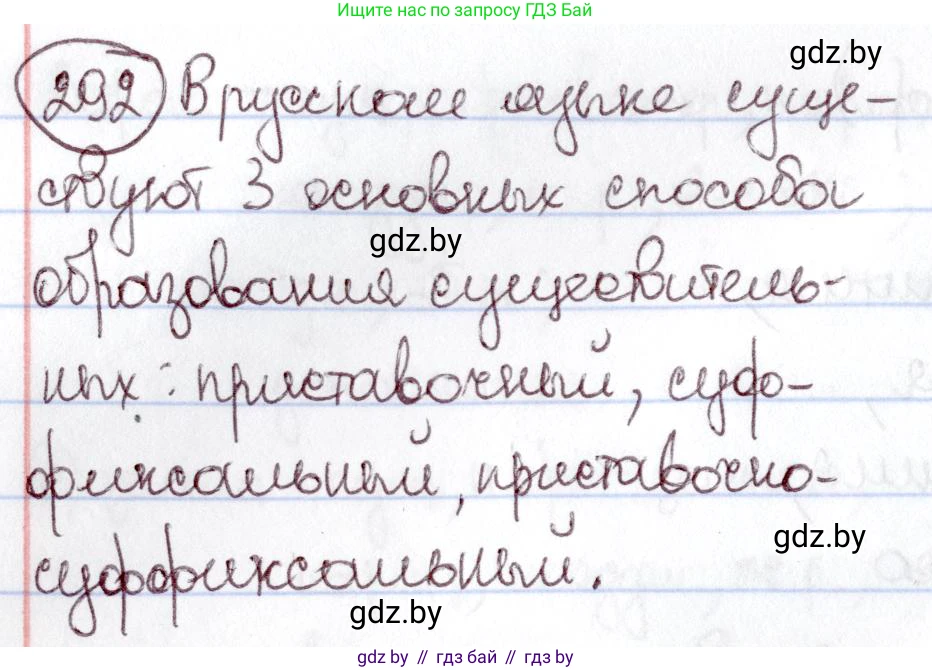 Ищите нас по запросу ГДЗ Бай
gdz.by
292 В русском языке суще-
ствуют 3 основных способа
gdz.by
образования существитель-
ных: приставочный, суф-
фиксальный, приставочно-
gdz.by
суффиксальный.
gdz.by
gdz.by // гдз бай // гдз by